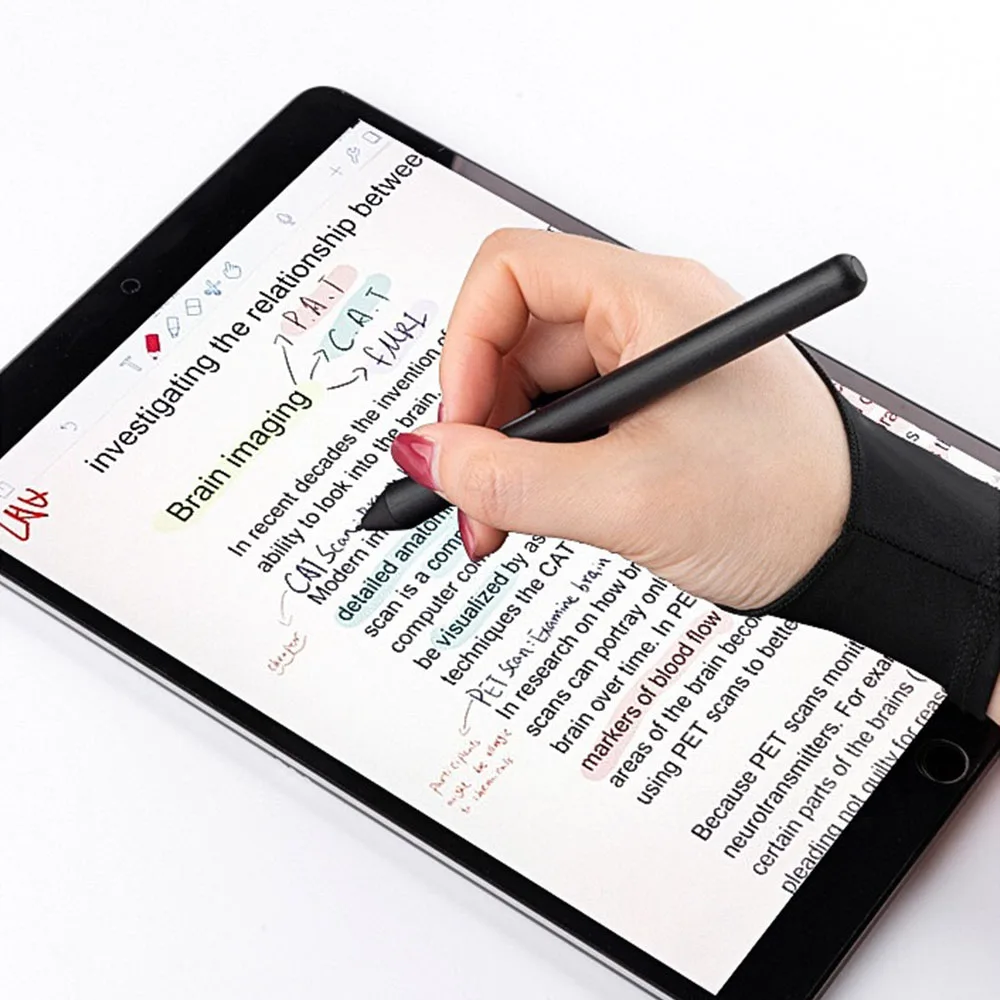 investigating the relationship betwee
P.A.T
C.A.T
fMRI
Brain imaging
In recent decades the invention of
ability to look into the brain,
CAT Scan
Modern im
detailed anatom
scan is a comp
computer co
be visualized by as
techniques the CAT
PET Scan: Examine brain
In research on how br
scans can portray on
brain over time. In PE
markers of blood flow
areas of the brain becom
using PET scans to bette
Participants
might be allergic
to chemicals
Because PET scans monit
neurotransmitters. For exa
certain parts of the brains (
pleading not guilty for reas